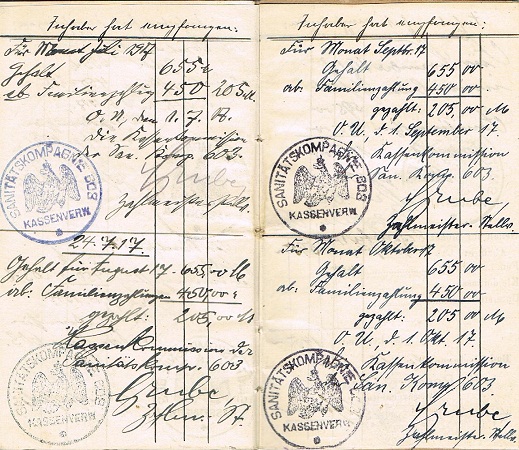 Inhaber hat empfangen:
Für Monat Juli 1917
Gehalt 655 M
ab Familienzahlung 450 205 M
O. U., den 1. 7. 17.
Die Kassenkommission
der San. Komp. 603.
Grube,
Zahlmeister Stellv.
SANITÄTSKOMPAGNIE 603
KASSENVERW.
24.7.17.
Gehalt für August 17. 655,00 M
ab: Familienzahlungen 450,00 "
gezahlt: 205,00 M
Kassenkommission der
Sanitätskomp. 603
Grube,
Zahlm. St.
SANITÄTSKOMPAGNIE 603
KASSENVERW.
Inhaber hat empfangen:
Für Monat Septbr. 17
Gehalt 655 00
ab: Familienzahlung 450 00
gezahlt: 205,00 M
O. U., d. 1. September 17.
Kassenkommission
San. Komp. 603.
Grube,
Zahlmeister-Stellv.
SANITÄTSKOMPAGNIE 603
KASSENVERW.
Für Monat Oktober 17
Gehalt 655 00
ab: Familienzahlung 450 00
gezahlt: 205 00 M
O. U., d. 1. Okt. 17.
Kassenkommission
San. Komp. 603
Grube,
Zahlmeister-Stellv.
SANITÄTSKOMPAGNIE 603
KASSENVERW.